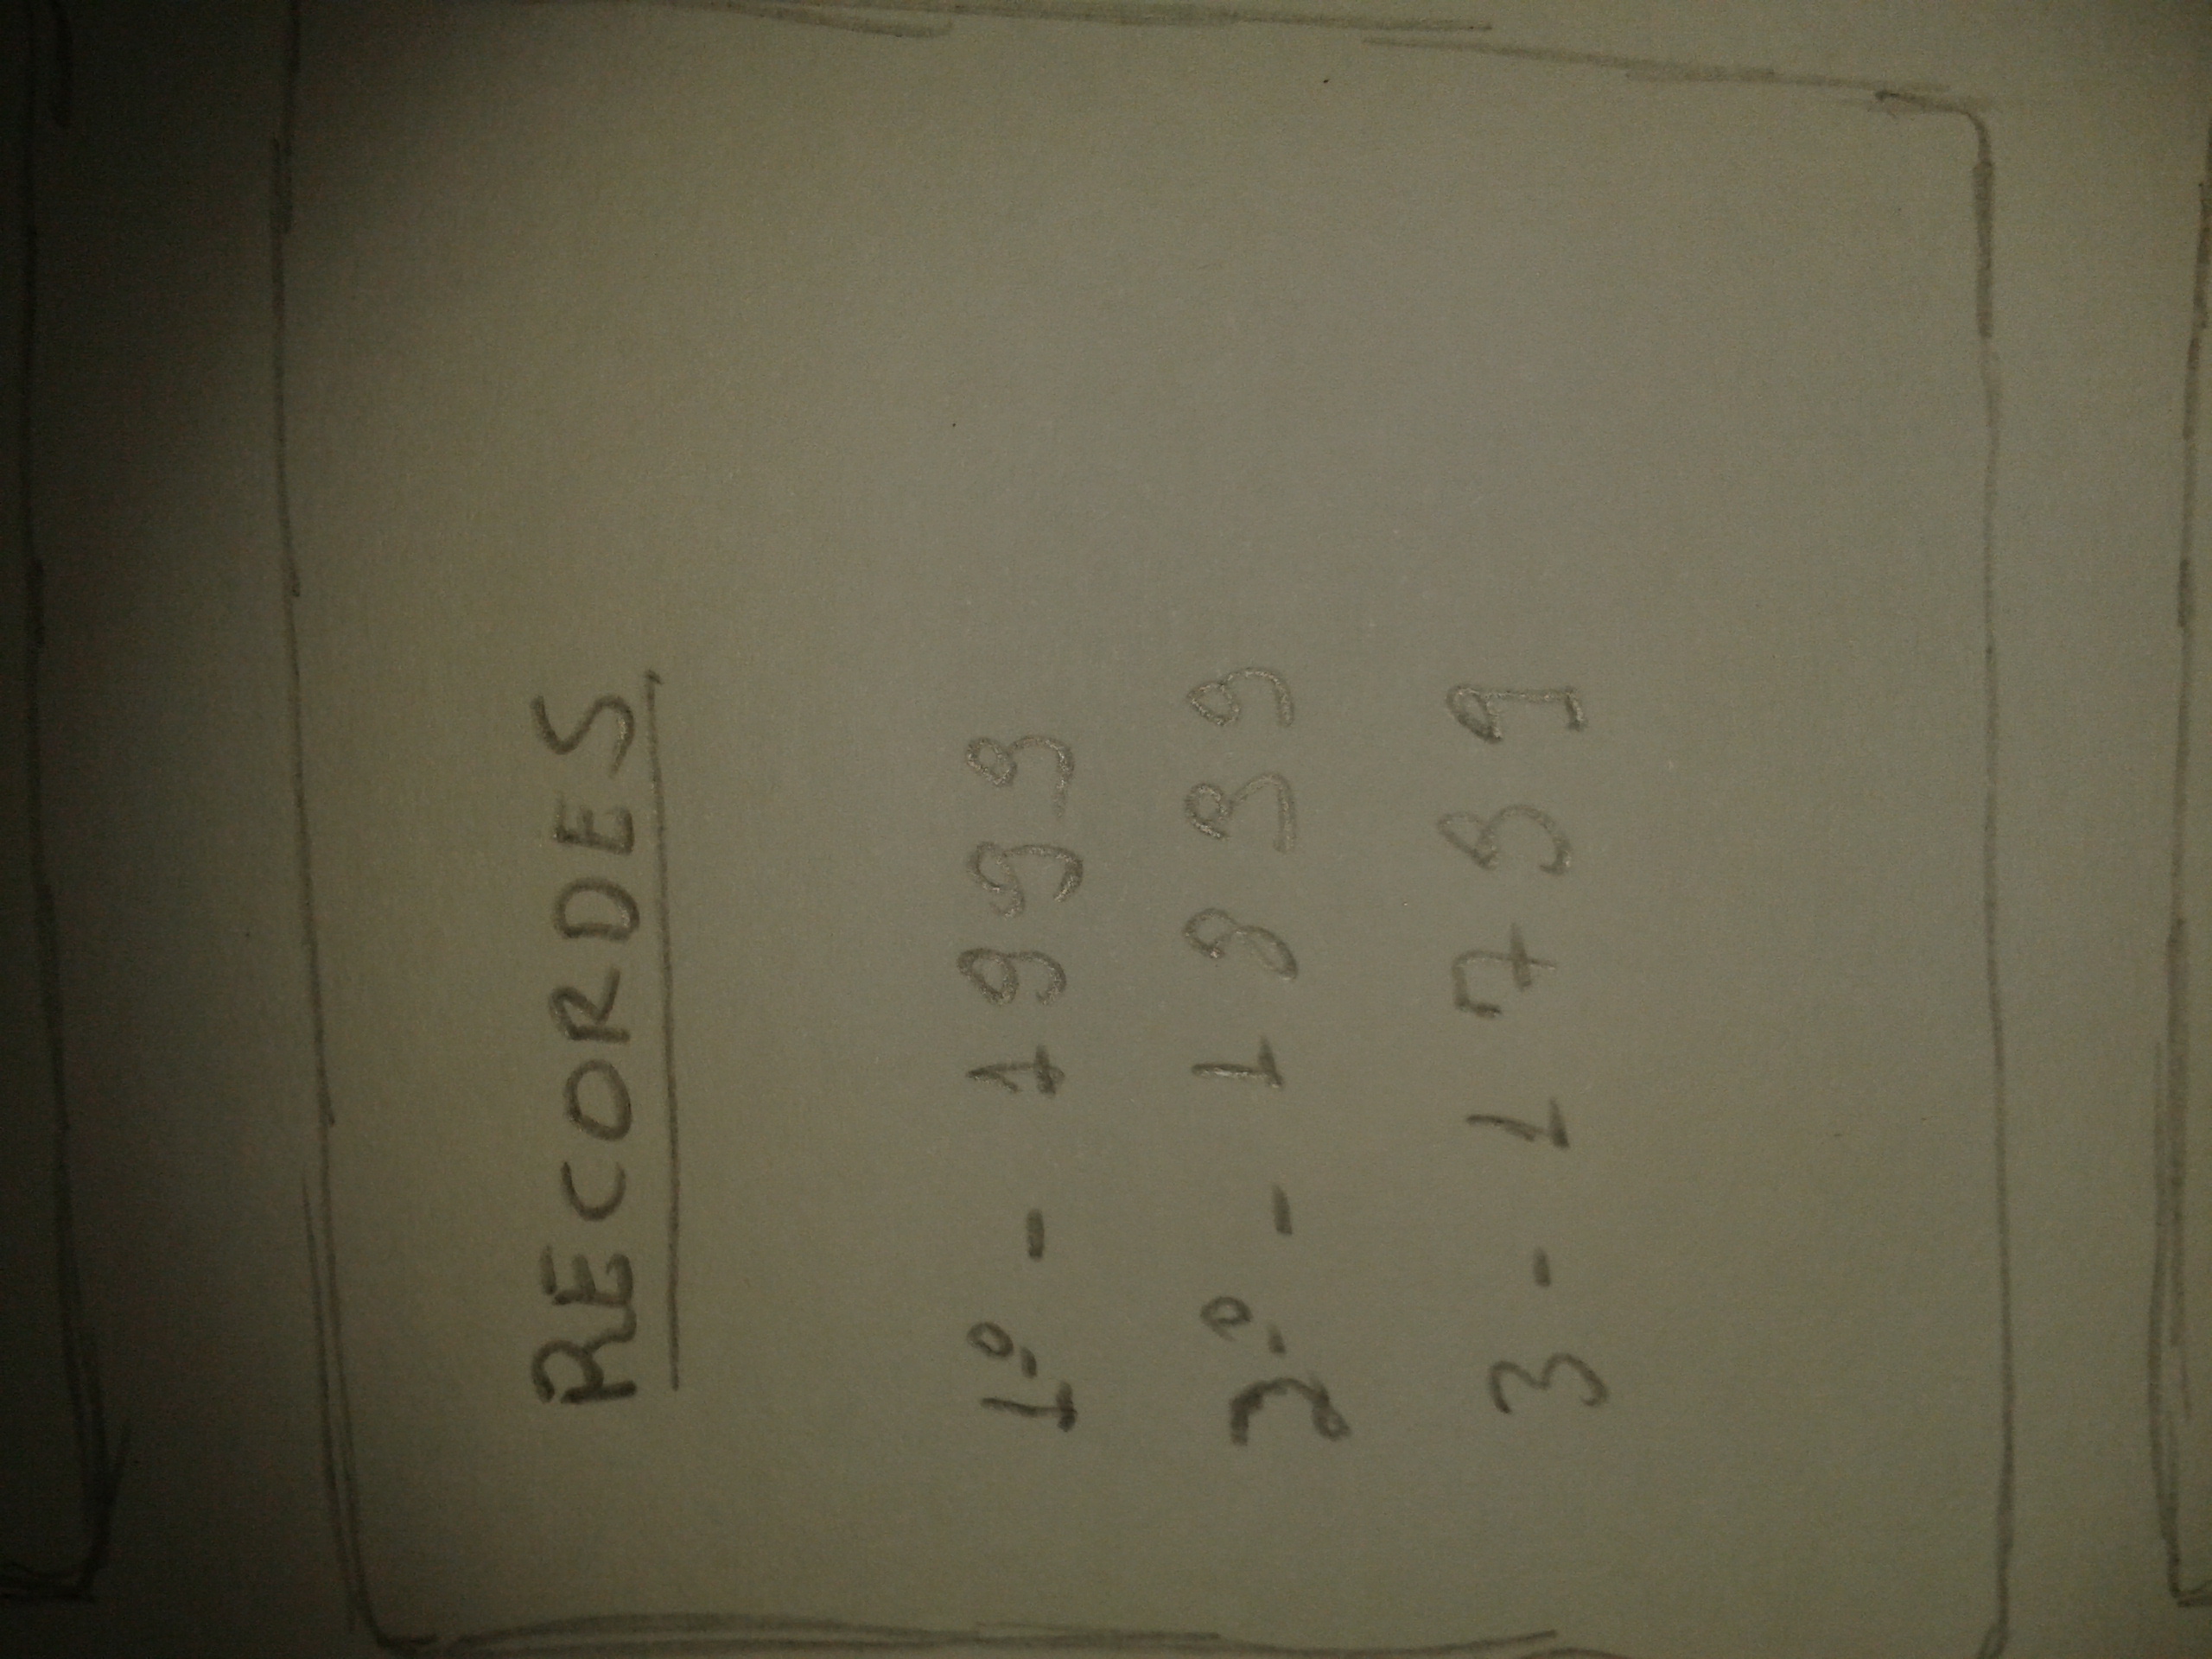 RECORDES
1º - 1999
2º - 1899
3 - 1799